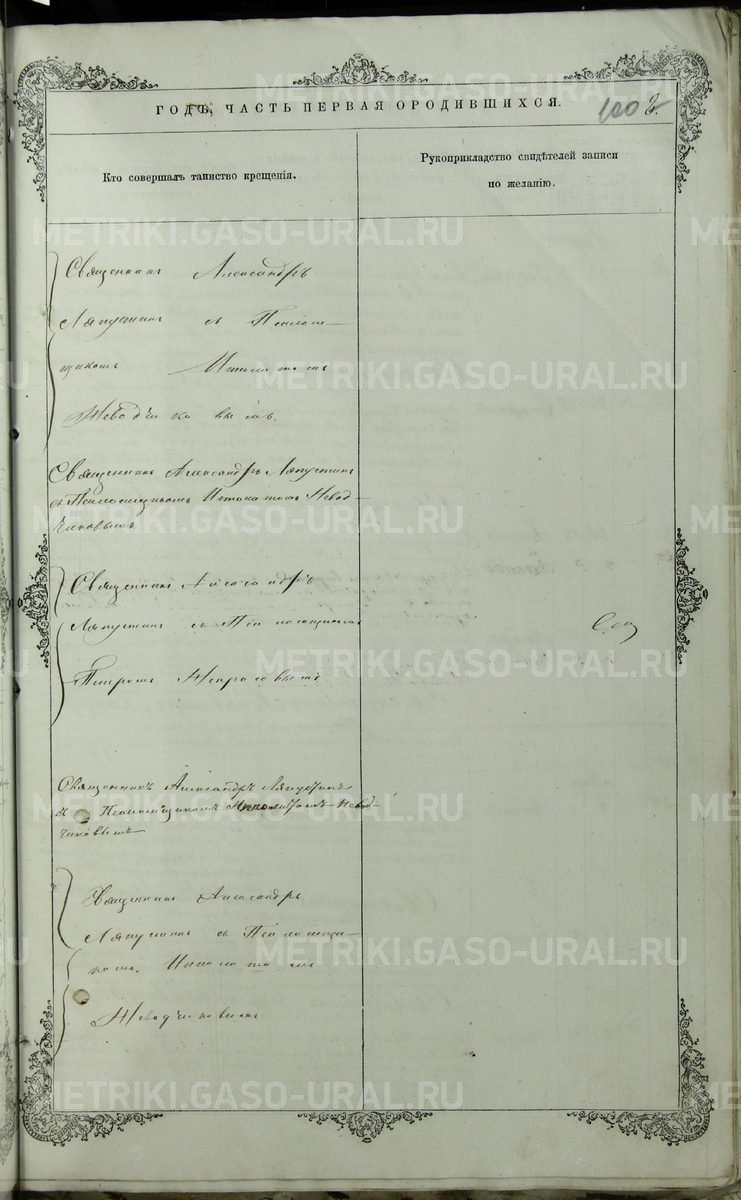 ГОДЪ, ЧАСТЬ ПЕРВАЯ О РОДИВШИХСЯ.
Кто совершалъ таинство крещенія.
Рукоприкладство свидѣтелей записи
по желанію.
Священникъ Александръ
Ляпустинъ съ Псалом-
щикомъ Ипполитомъ
Неводчиковымъ.
Священникъ Александръ Ляпустинъ
съ Псаломщикомъ Ипполитомъ Невод-
чиковымъ
Священникъ Александръ
Ляпустинъ съ Псаломщикомъ
Петромъ Некрасовымъ
Священникъ Александръ Ляпустинъ
съ Псаломщикомъ Ипполитомъ Невод-
чиковымъ
Священникъ Александръ
Ляпустинъ съ Псаломщи-
комъ Ипполитомъ
Неводчиковымъ
METRIKI.GASO-URAL.RU